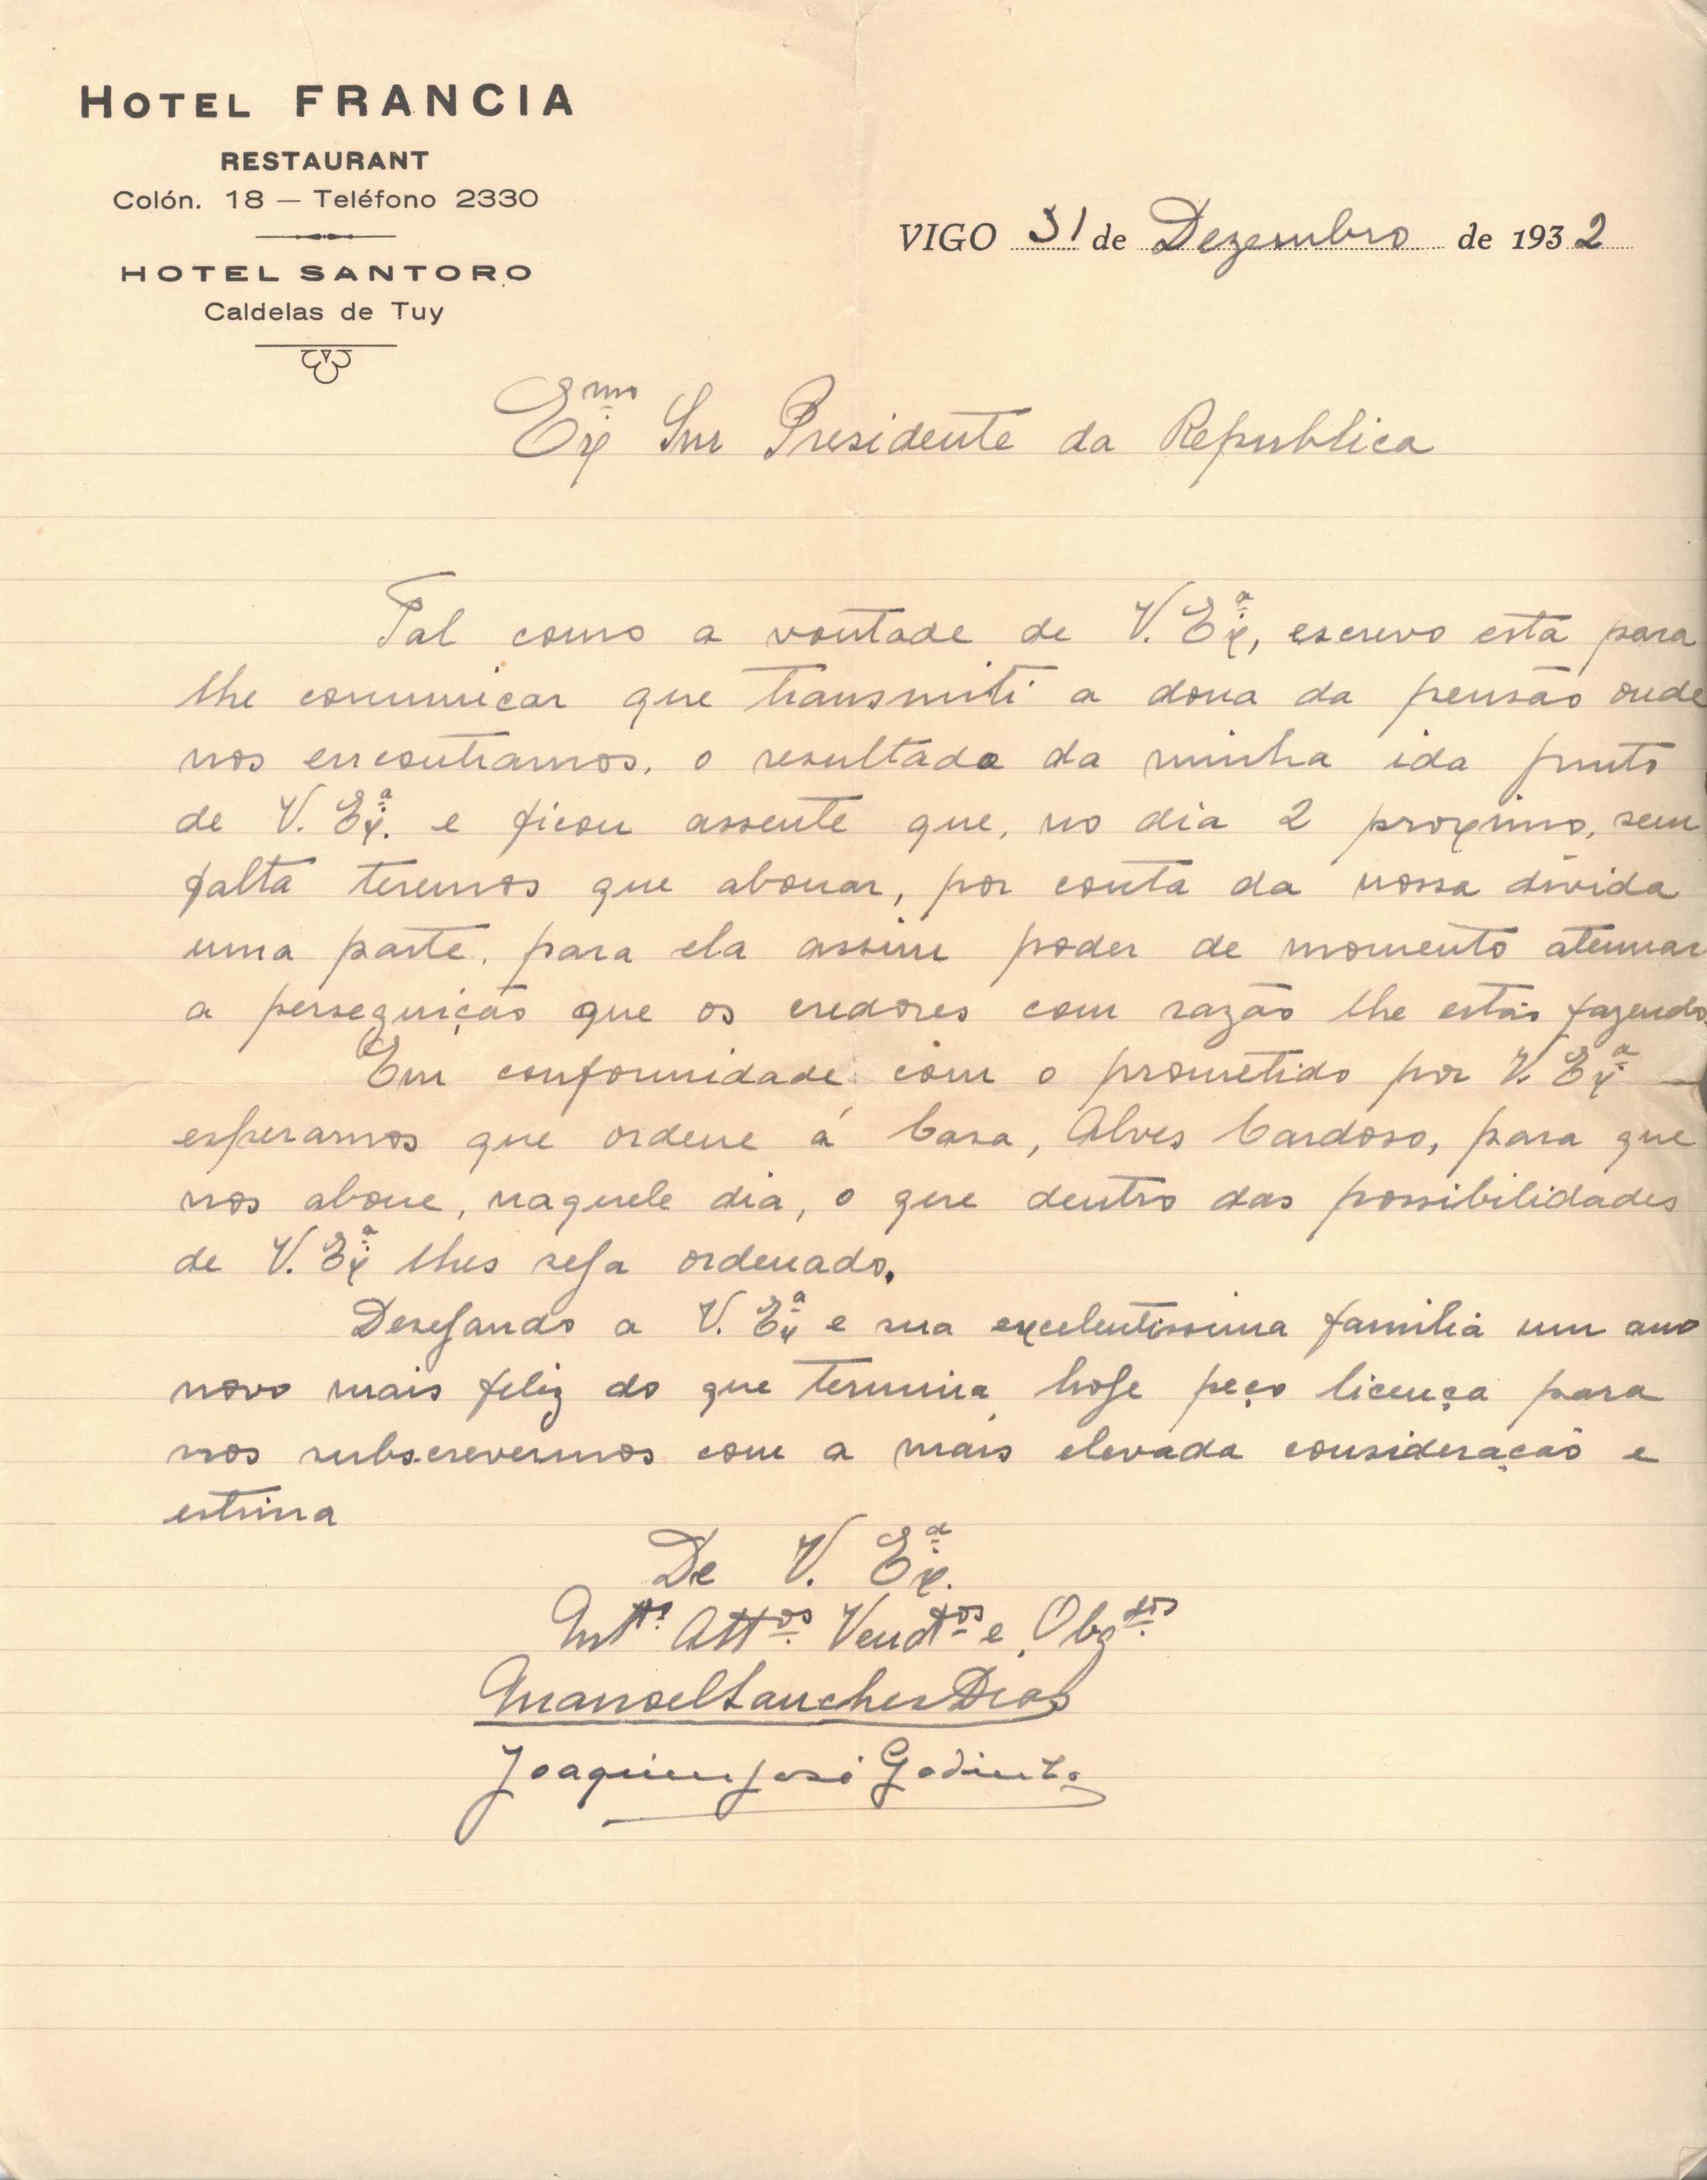 HOTEL FRANCIA
RESTAURANT
Colón. 18 — Teléfono 2330
HOTEL SANTORO
Caldelas de Tuy
VIGO 31 de Dezembro de 1932
Exmo Snr Presidente da Republica
Tal como a vontade de V. Exª, escrevo esta para
lhe comunicar que transmiti a dona da pensão onde
nos encontramos, o resultado da minha ida junto
de V. Exª. e ficou assente que, no dia 2 proximo, sem
falta teremos que abonar, por conta da nossa divida
uma parte, para ela assim poder de momento atenuar
a perseguição que os credores com razão lhe estão fazendo
Em conformidade com o prometido por V. Exª
esperamos que ordene á Casa, Alves Cardoso, para que
nos abone, naquele dia, o que dentro das possibilidades
de V. Exª lhes seja ordenado.
Desejando a V. Exª e sua excelentissima familia um ano
novo mais feliz do que termina hoje peço licença para
nos subscrevermos com a mais elevada consideração e
estima
De V. Exª.
Mtos Attos Vendos e Obgdos
Manoel Sanches Dias
Joaquim José Godinho